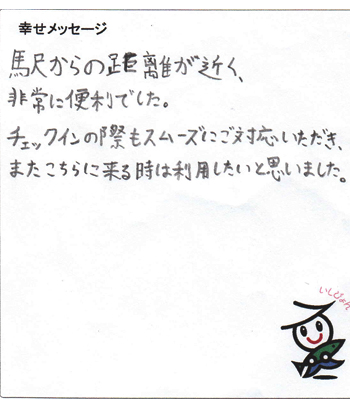 幸せメッセージ
馬尺からの距離が近く、
非常に便利でした。
チェックインの際もスムーズにご対応いただき、
またこちらに来る時は利用したいと思いました。
いしぴょん